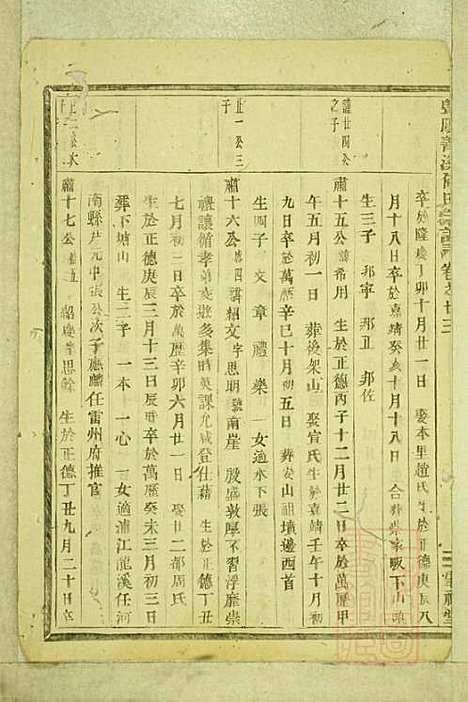 卒於隆慶丁卯十月廿一日 娶本里趙氏生於正德庚辰八
月十八日卒於嘉靖癸亥十月十八日 合葬 家畈下山
生三子 邦寧 邦正 邦佐
謹廿四公之子
蕭十五公 用 生於正德丙子十二月廿二日卒於萬歷甲
午五月初一日 葬後架山 娶宣氏生於嘉靖壬午十月初
九日卒於萬歷辛巳十月初五日 葬 山祖墳邊西首
生四子 文 章 禮 樂 女適水下張
廿一公三子
蕭十六公 諱紹文字思明號南崖 敦厚不習浮靡崇
禮讓循孝弟 遊多集時英課允咸登仕藉 生於正德丁丑
七月初二日卒於萬歷辛卯六月廿一日 娶廿二都周氏
生於正德庚辰三月十三日辰時卒於萬歷癸未三月初三日
葬下塘山 生二子 一本 一心 一女適浦江龍溪任河
南縣 元中張公次子應麟任雷州府推官
蕭十七公 紹 思 生於正德丁丑九月二十日